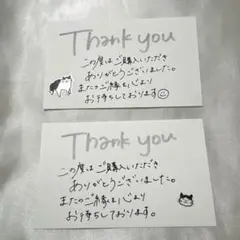 Thank you
この度はご購入いただき
ありがとうございました。
またのご縁を心より
お待ちしております
Thank you
この度はご購入いただき
ありがとうございました。
またのご縁を心より
お待ちしております。